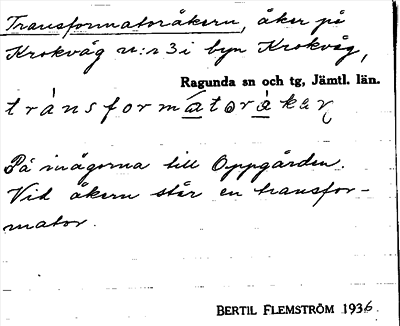 Transformatoråkern, åker på
Krokvåg n:r 3 i byn Krokvåg,
Ragunda sn och tg, Jämtl. län.
På inägorna till Oppgården.
Vid åkern står en transfor-
mator.
BERTIL FLEMSTRÖM 1936.